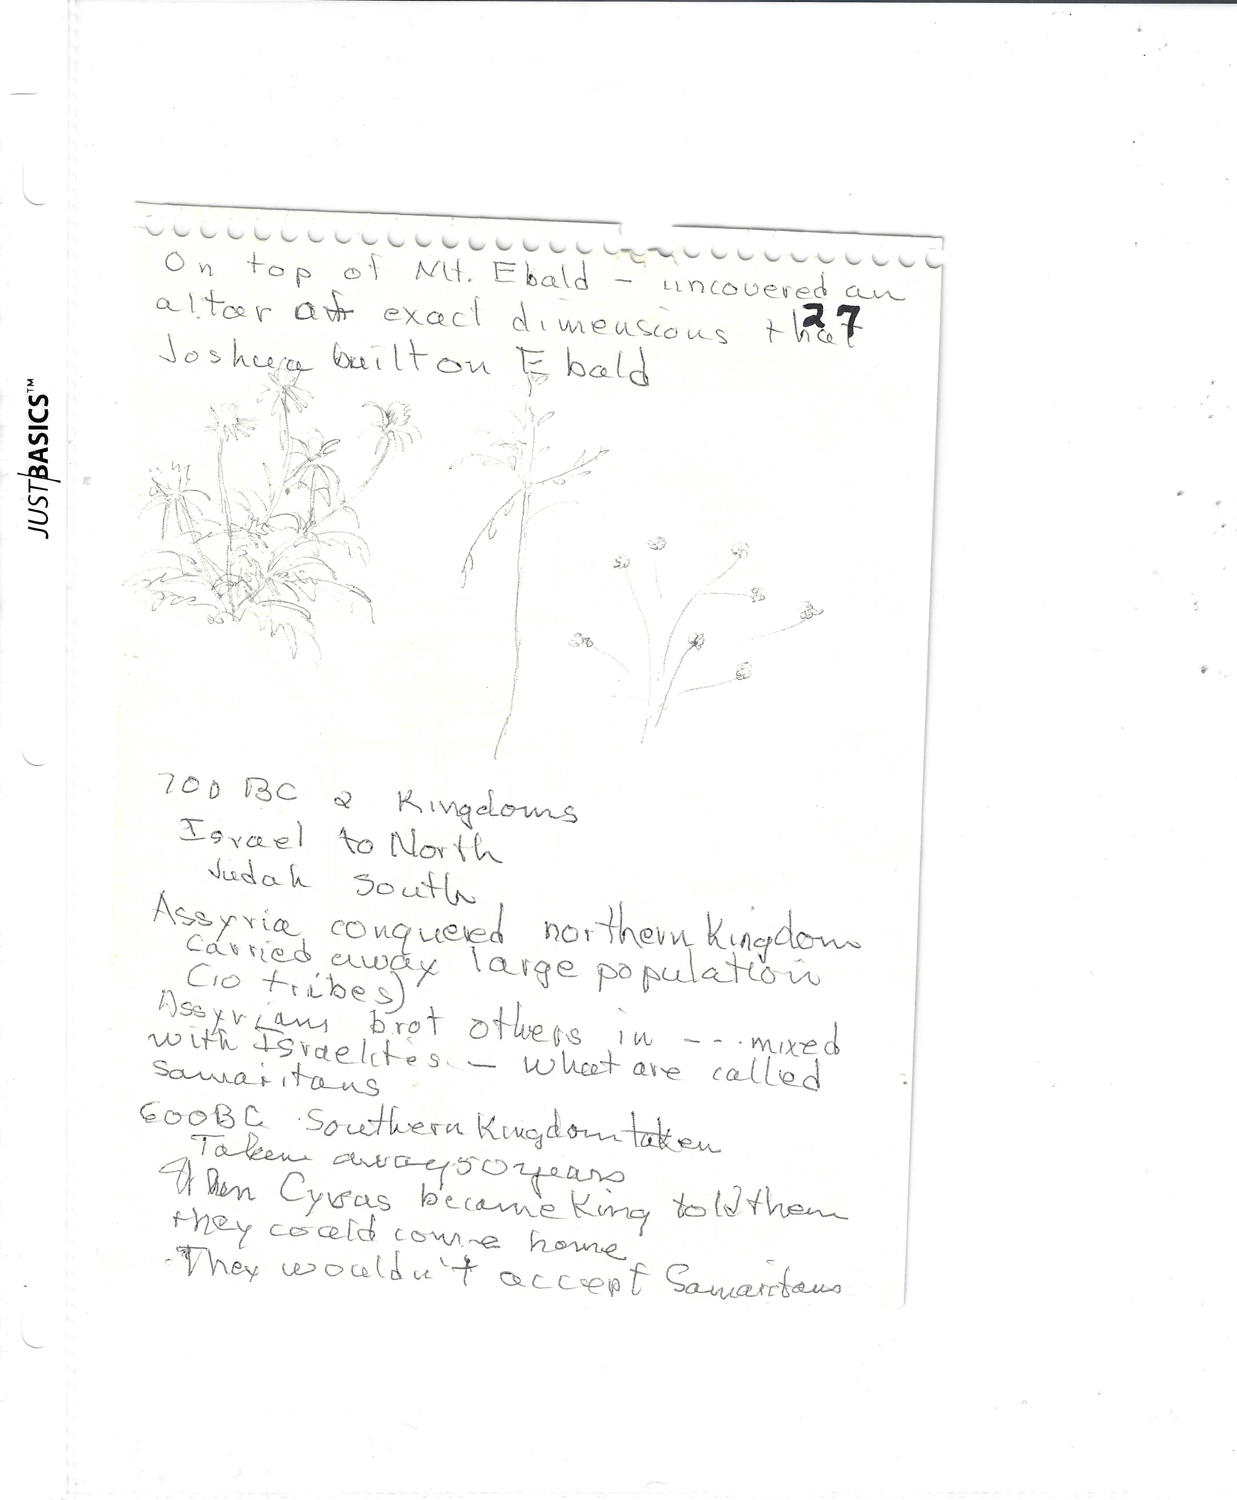 On top of Mt. Ebald - uncovered an
altar of exact dimensions that
27
Joshua built on Ebald
JUST BASICS™
700 BC 2 Kingdoms
Israel to North
Judah South
Assyria conquered northern Kingdom
Carried away large population
(10 tribes)
Assyrians brot others in --- mixed
with Israelites - what are called
Samaritans
600BC Southern Kingdom taken
Taken away 50 years
When Cyras became King told them
they could come home
They wouldn't accept Samaritans